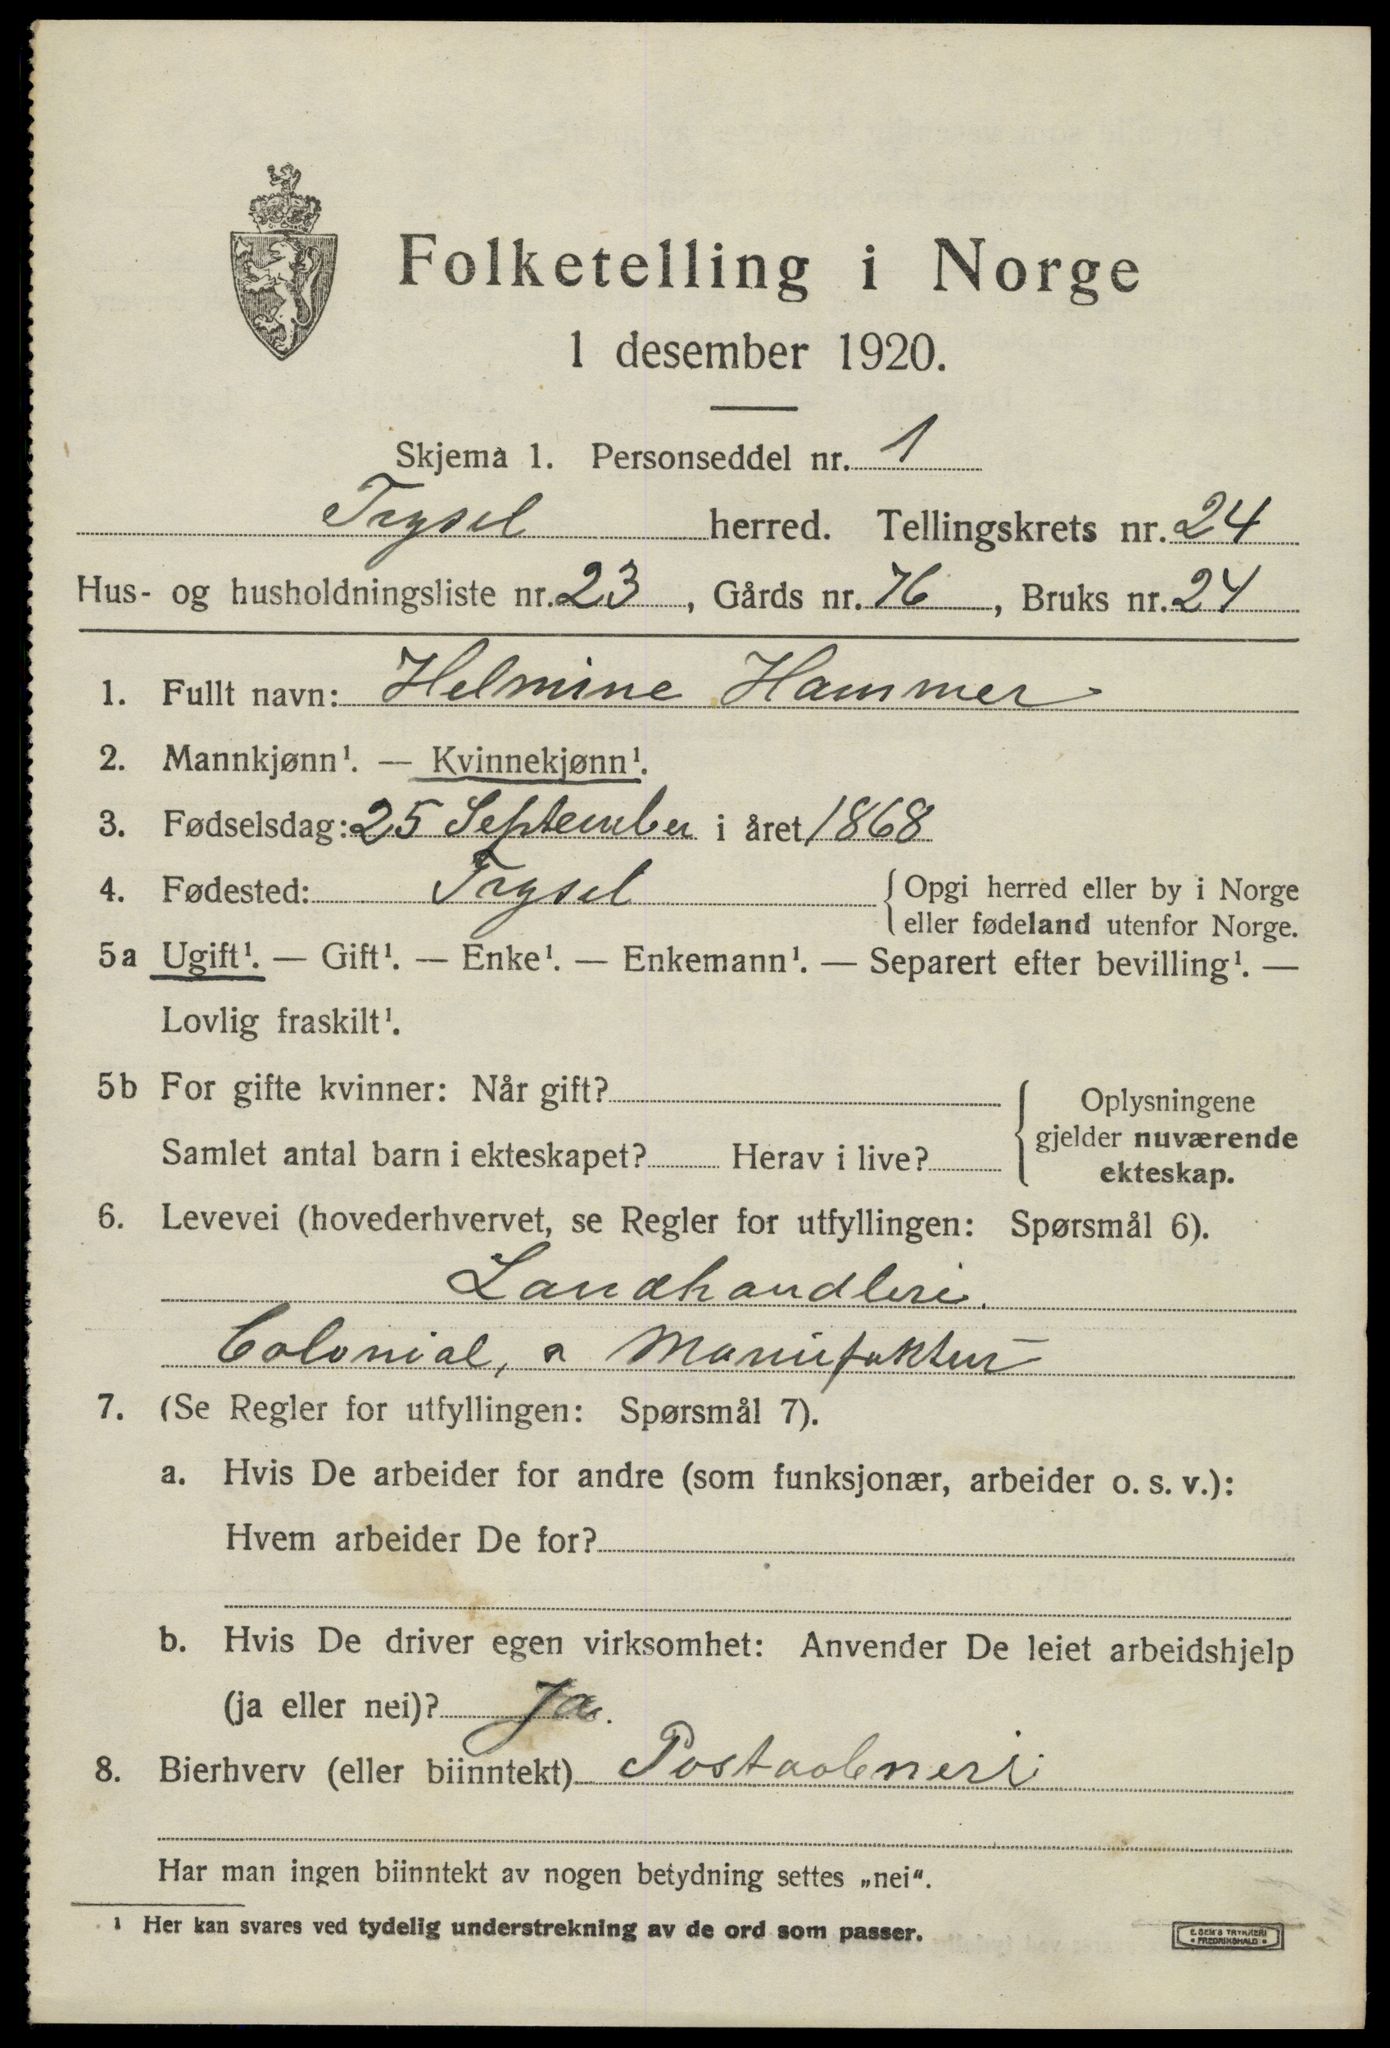 Folketelling i Norge
1 desember 1920.
Skjema 1. Personseddel nr. 1
Trysel herred. Tellingskrets nr. 24
Hus- og husholdningsliste nr. 23, Gårds nr. 76, Bruks nr. 24
1. Fullt navn: Helmine Hammer
2. Mannkjønn¹. — Kvinnekjønn¹.
3. Fødselsdag: 25 September i året 1868
4. Fødested: Trysel { Opgi herred eller by i Norge
eller fødeland utenfor Norge.
5a Ugift¹. — Gift¹. — Enke¹. — Enkemann¹. — Separert efter bevilling¹. —
Lovlig fraskilt¹.
5b For gifte kvinner: Når gift? { Oplysningene
gjelder nuværende
Samlet antal barn i ekteskapet? Herav i live?
ekteskap.
6. Levevei (hovederhvervet, se Regler for utfyllingen: Spørsmål 6).
Landhandleri.
Colonial, a Manufaktur
7. (Se Regler for utfyllingen: Spørsmål 7).
a. Hvis De arbeider for andre (som funksjonær, arbeider o. s. v.):
Hvem arbeider De for?
b. Hvis De driver egen virksomhet: Anvender De leiet arbeidshjelp
(ja eller nei)? Ja.
8. Bierhverv (eller biinntekt) Postaabneri
Har man ingen biinntekt av nogen betydning settes „nei“.
¹ Her kan svares ved tydelig understrekning av de ord som passer.
E. SEM'S TRYKKERI
FREDRIKSHALD